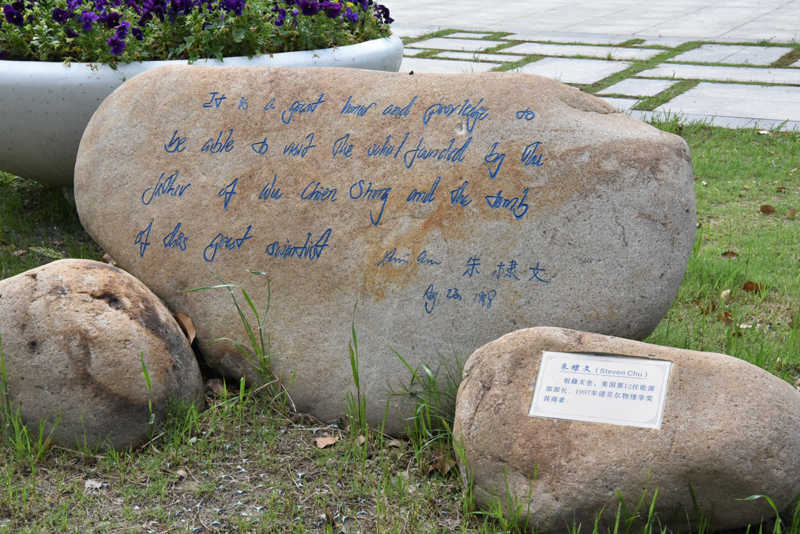 It is a great honor and priveledge to
be able to visit the school founded by the
father of Wu Chien Shiung and the tomb
of this great scientist
朱棣文
Aug. 23,
朱棣文 (Steven Chu)
祖籍太仓，美国第12任能源
部部长，1997年诺贝尔物理学奖
获得者